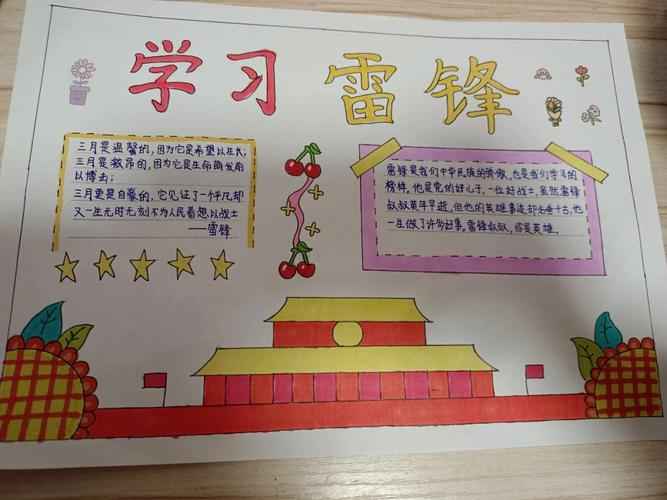 学习 雷锋
三月是温馨的,因为它是希望以在长;
三月是激昂的,因为它是生命的发前
以博击;
三月更是自豪的,它见证了一个平凡却
又一生无时无刻不为人民着想以战士
——雷锋
雷锋是我们中华民族的骄傲,也是我们学习的
榜样,他是党的好儿子,一位好战士,虽然雷锋
叔叔英年早逝,但他的英雄事迹却永垂千古,他
一生做了许多好事,雷锋叔叔,你是英雄。